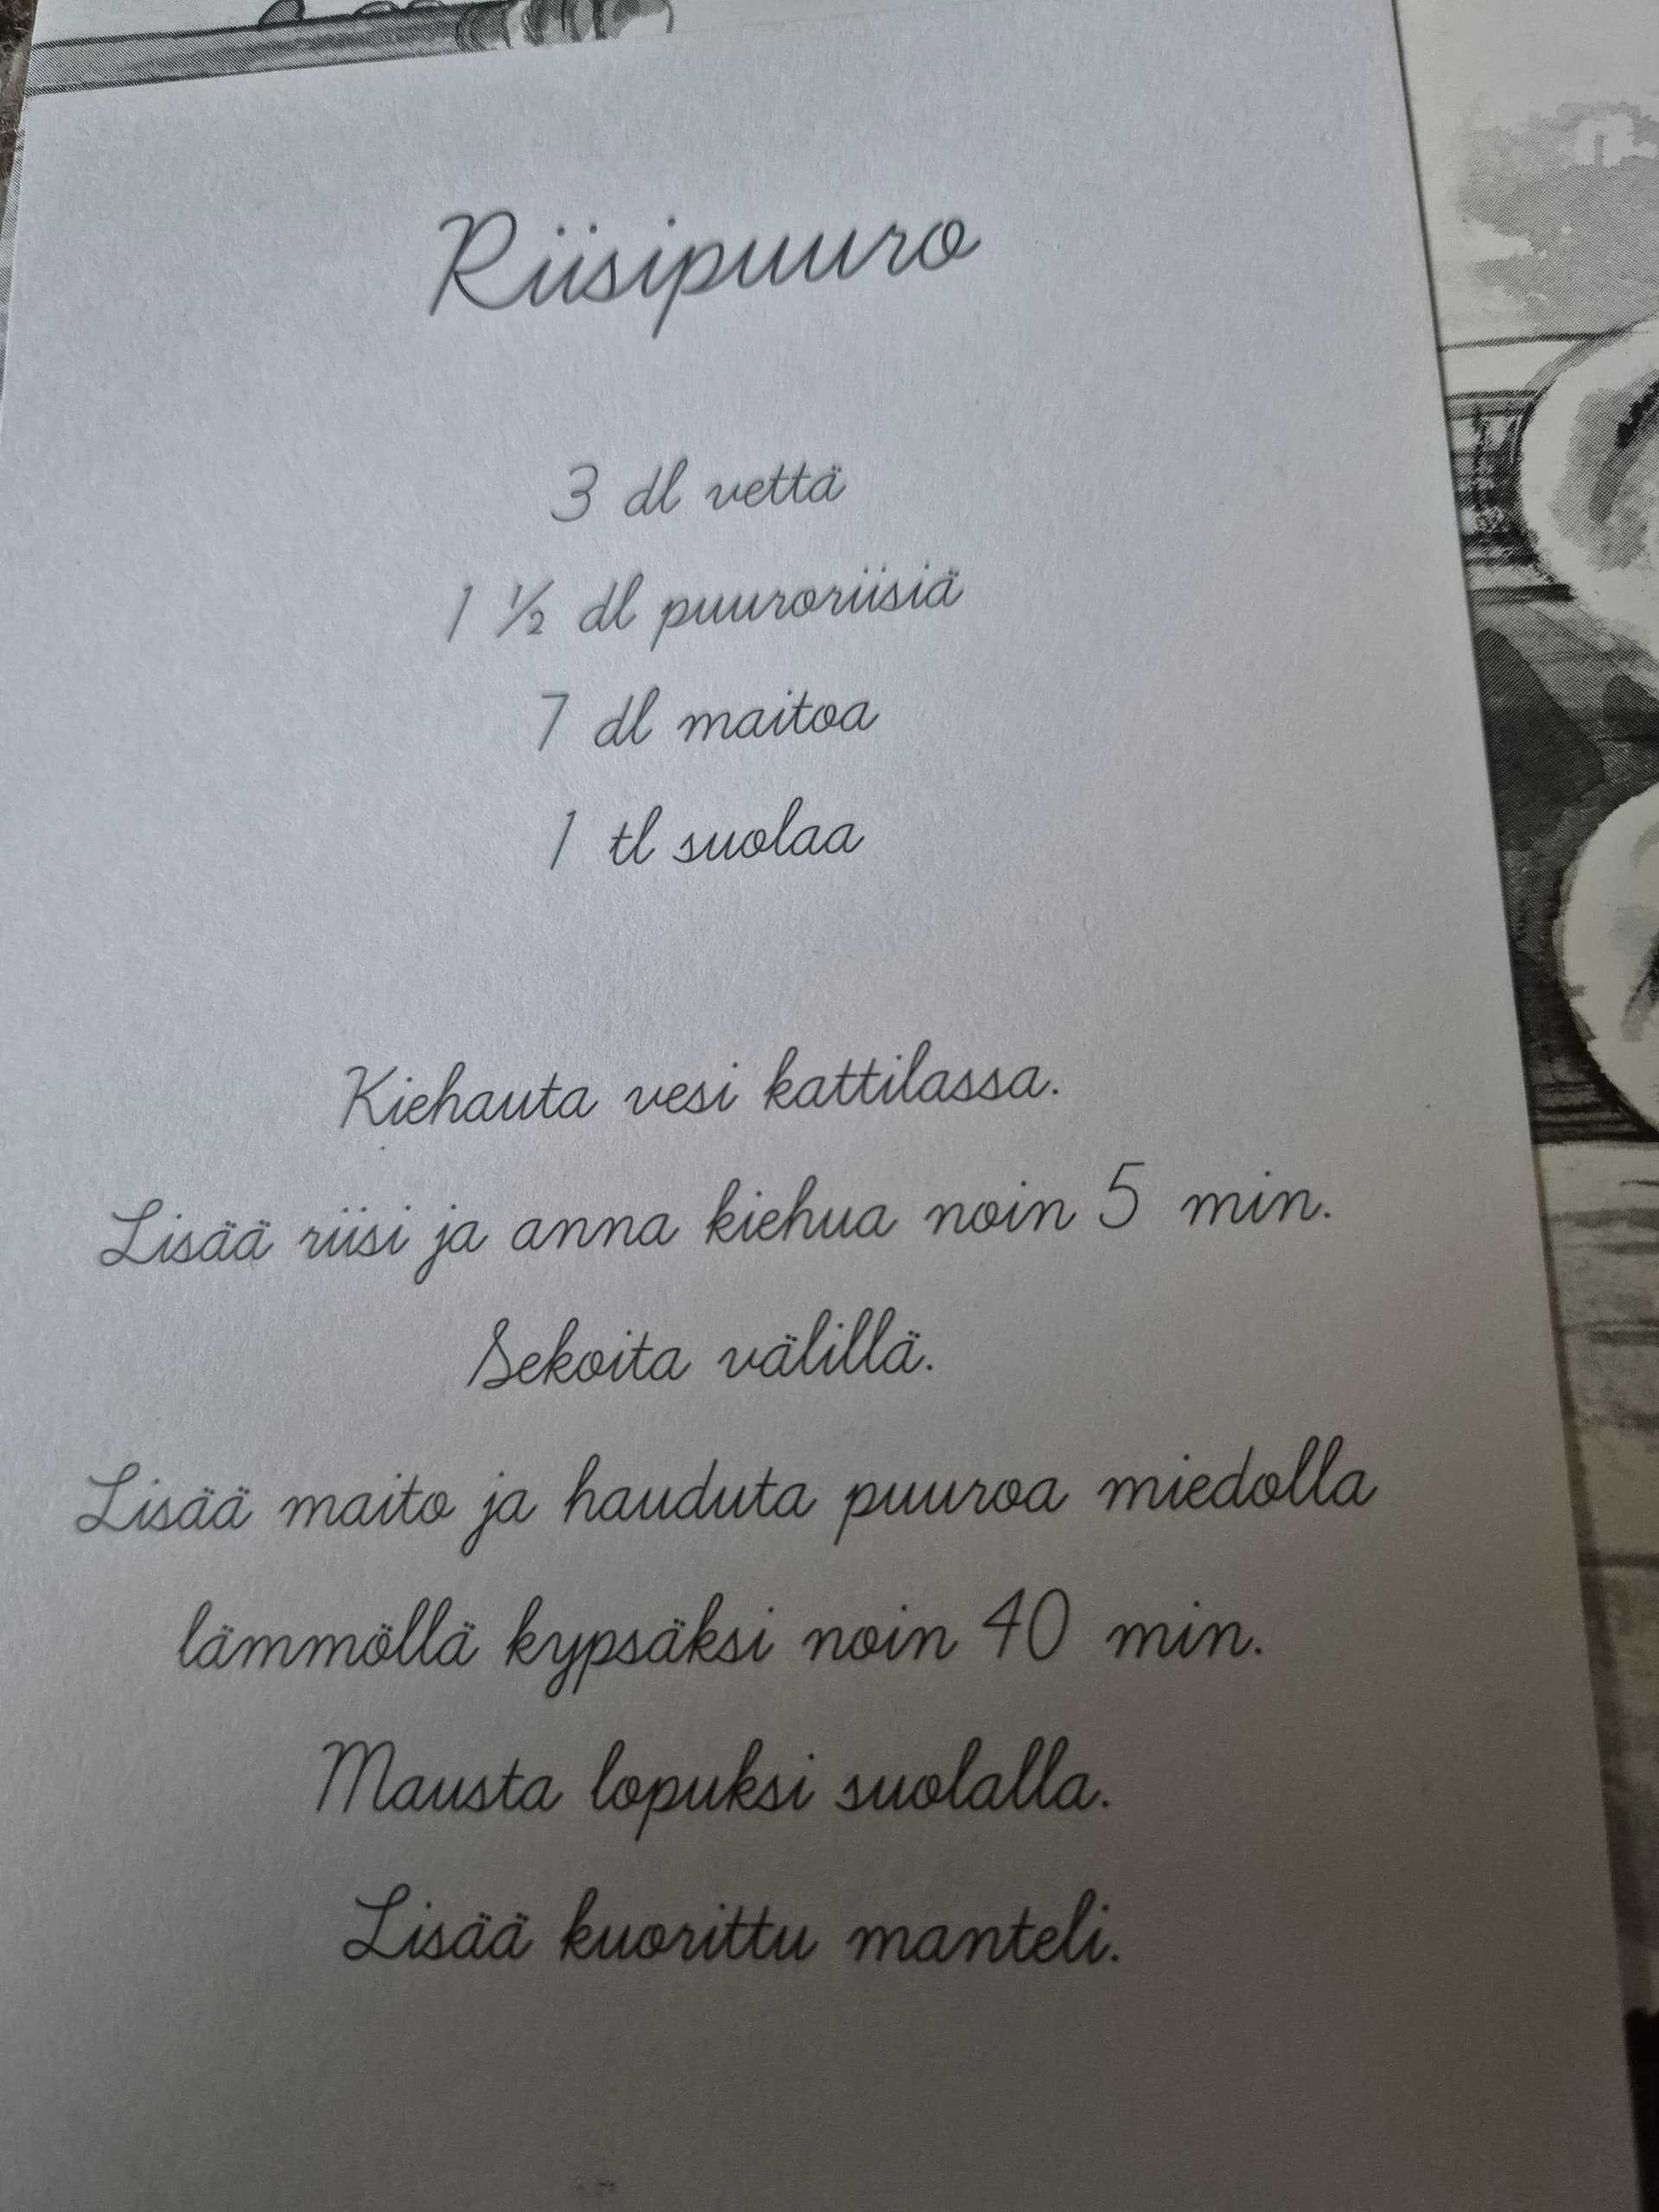 Riisipuuro
3 dl vettä
1 ½ dl puuroriisiä
7 dl maitoa
1 tl suolaa
Kiehauta vesi kattilassa.
Lisää riisi ja anna kiehua noin 5 min.
Sekoita välillä.
Lisää maito ja hauduta puuroa miedolla
lämmöllä kypsäksi noin 40 min.
Mausta lopuksi suolalla.
Lisää kuorittu manteli.